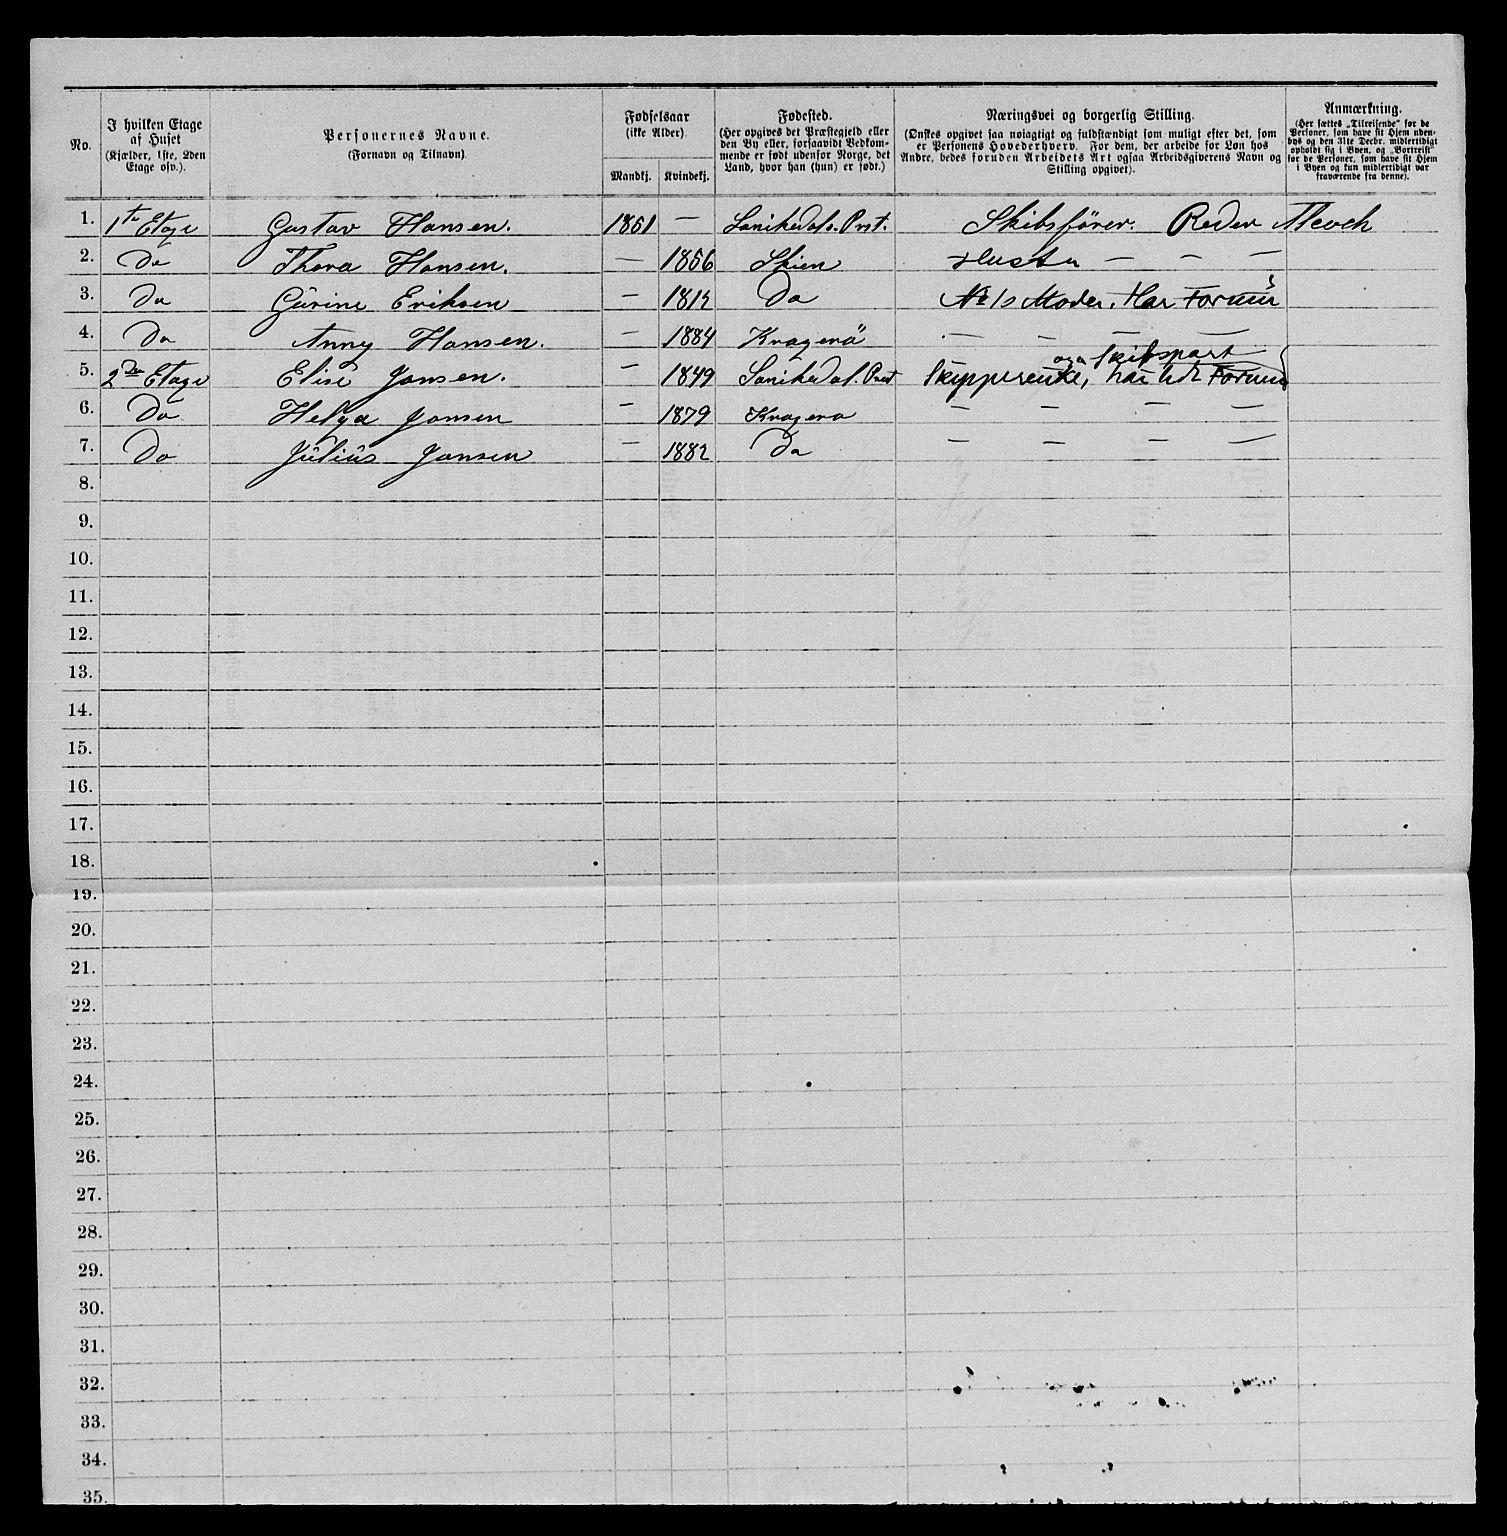 No.
I hvilken Etage af Huset (Kjælder, 1ste, 2den Etage osv.).
Personernes Navne. (Fornavn og Tilnavn).
Fødselsaar (ikke Alder).
Mandkj.
Kvindekj.
Fødested. (Her opgives det Præstegjeld eller den By eller, forsaavidt Vedkommende er født udenfor Norge, det Land, hvor han (hun) er født.)
Næringsvei og borgerlig Stilling. (Ønskes opgivet saa nøiagtigt og fuldstændigt som muligt efter det, som er Personens Hovederhverv. For dem, der arbeide for Løn hos Andre, bedes foruden Arbeidets Art ogsaa Arbeidsgiverens Navn og Stilling opgivet).
Anmærkning. (Her sættes „Tilreisende“ for de Personer, som have sit Hjem udenbys og den 31te Decbr. midlertidigt opholdt sig i Byen, og „Bortreist“ for de Personer, som have sit Hjem i Byen og kun midlertidigt var fraværende fra denne).
1. 1te Etage Gustav Hansen. 1851 — Sanikedals. Prst. Skibsfører. Reder
2. Do Thora Hansen. — 1856 Skien Hustru — — —
3. Do Gürine Eriksen — 1812 Do No 1s Moder. Har Formue
4. Do Anny Hansen. — 1884 Kragerö — — — —
5. 2den Etage Elise Jansen. — 1849 Sanikedal. Prst Skipperenke, har lidt Formue
og Skibspart
6. Do Helga Jansen — 1879 Kragerø — — — —
7. Do Jülius Jansen — 1882 Do — — — —
8.
9.
10.
11.
12.
13.
14.
15.
16.
17.
18.
19.
20.
21.
22.
23.
24.
25.
26.
27.
28.
29.
30.
31.
32.
33.
34.
35.